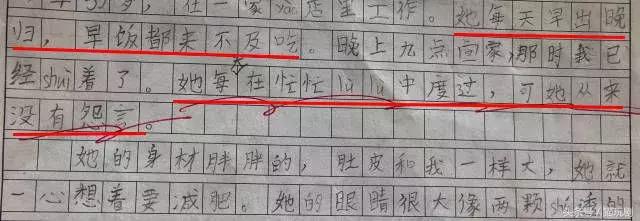 岁，在一家 店里工作。她每天早出晚
归，早饭都来不及吃。晚上九点回家，那时我已
经shuì着了。她每在忙忙lù lù中度过，可她从来
没有怨言。
她的身材胖胖的，肚皮和我一样大，她就
一心想着要减肥。她的眼睛很大像两颗shú透的
头条号